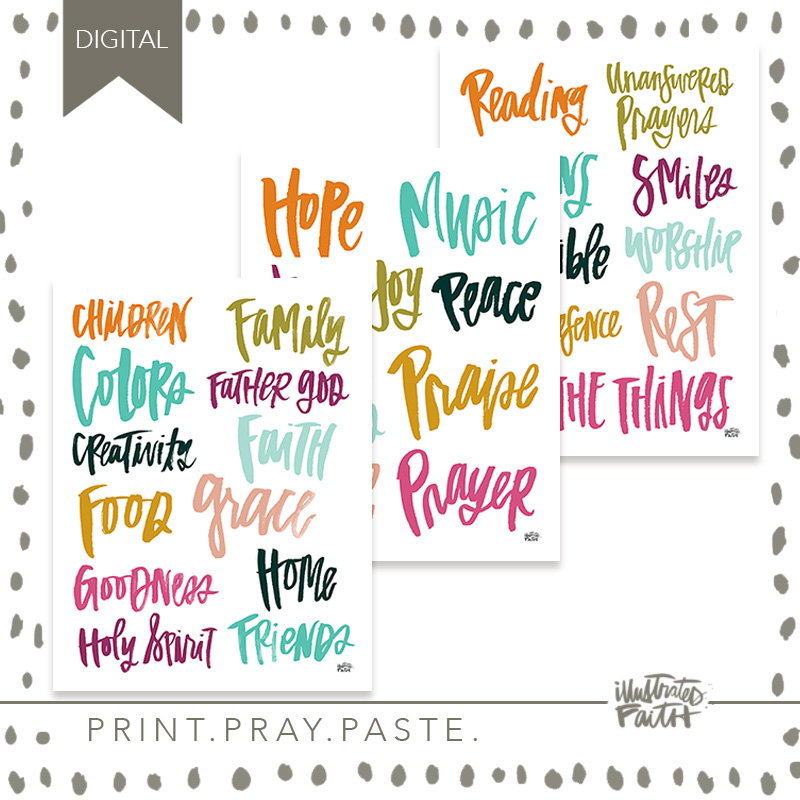 DIGITAL
Reading
Unanswered
Prayers
Smiles
Worship
Rest
THE THINGS
Illustrated
Faith
Hope
Music
Joy
Peace
Praise
Prayer
Children
Family
Colors
Father God
Creativity
Faith
Food
Grace
Goodness
Home
Holy Spirit
Friends
PRINT.PRAY.PASTE.
illustrated
FAITH